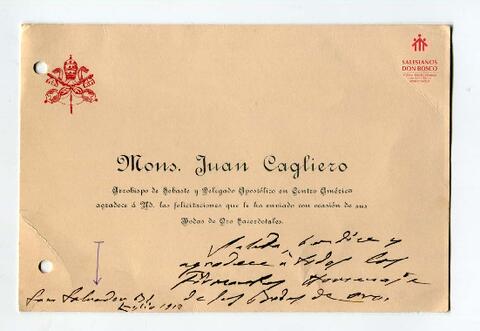 SALESIANOS
DON BOSCO
Mons. Juan Cagliero
Arzobispo de Sebaste y Delegado Apostólico en Centro América
agradece á Ud. las felicitaciones que le ha enviado con ocasión de sus
Bodas de Oro Sacerdotales.
Saluda, bendice y
agradece a todos los
Homenaje
San Salvador
Julio 1912 de las Bodas de oro.